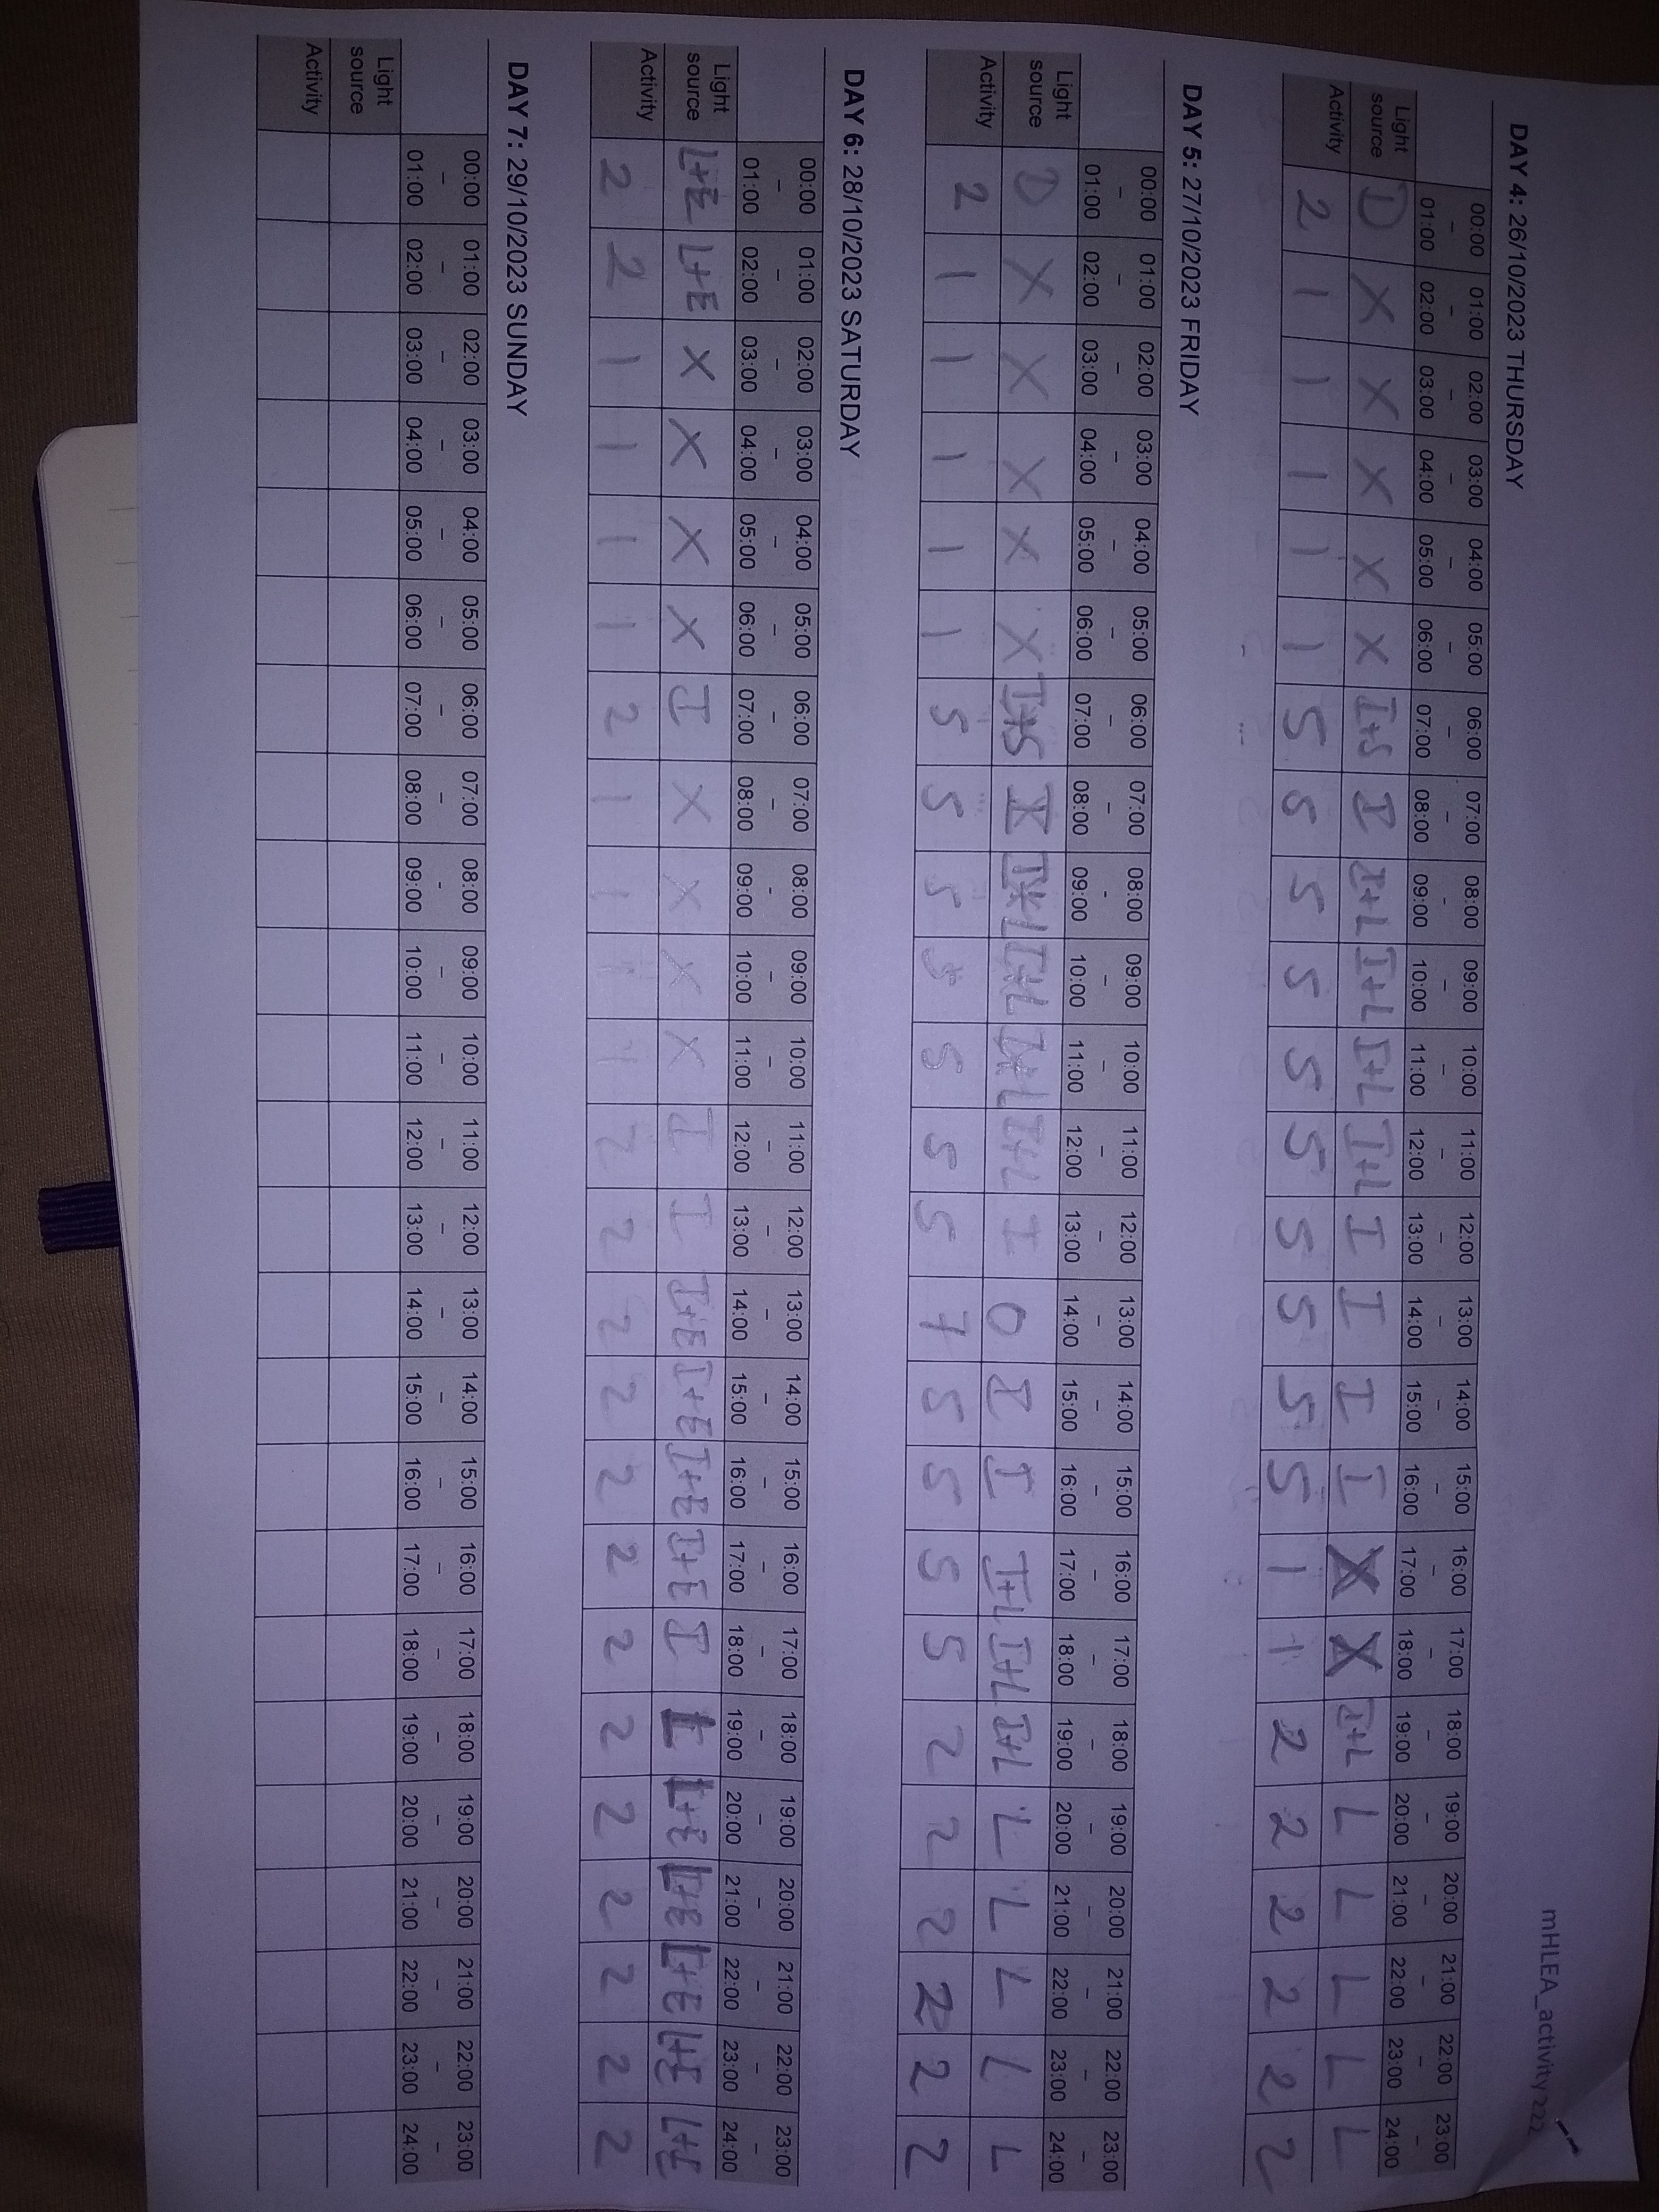 mHLEA_activity 222
DAY 4: 26/10/2023 THURSDAY
00:00 – 01:00 01:00 – 02:00 02:00 – 03:00 03:00 – 04:00 04:00 – 05:00 05:00 – 06:00 06:00 – 07:00 07:00 – 08:00 08:00 – 09:00 09:00 – 10:00 10:00 – 11:00 11:00 – 12:00 12:00 – 13:00 13:00 – 14:00 14:00 – 15:00 15:00 – 16:00 16:00 – 17:00 17:00 – 18:00 18:00 – 19:00 19:00 – 20:00 20:00 – 21:00 21:00 – 22:00 22:00 – 23:00 23:00 – 24:00
Light source D X X X X X I+S I I+L I+L I+L I+L I I I I X X I+L L L L L L
Activity 2 1 1 1 1 1 5 5 5 5 5 5 5 5 5 5 1 1 2 2 2 2 2 2
DAY 5: 27/10/2023 FRIDAY
00:00 – 01:00 01:00 – 02:00 02:00 – 03:00 03:00 – 04:00 04:00 – 05:00 05:00 – 06:00 06:00 – 07:00 07:00 – 08:00 08:00 - 09:00 09:00 – 10:00 10:00 – 11:00 11:00 – 12:00 12:00 – 13:00 13:00 – 14:00 14:00 – 15:00 15:00 – 16:00 16:00 – 17:00 17:00 – 18:00 18:00 – 19:00 19:00 – 20:00 20:00 – 21:00 21:00 – 22:00 22:00 – 23:00 23:00 – 24:00
Light source D X X X X X I+S I I+L I+L I+L I+L I O I I I+L I+L I+L L L L L L
Activity 2 1 1 1 1 1 5 5 5 5 5 5 5 7 5 5 5 5 2 2 2 2 2 2
DAY 6: 28/10/2023 SATURDAY
00:00 – 01:00 01:00 – 02:00 02:00 – 03:00 03:00 – 04:00 04:00 – 05:00 05:00 – 06:00 06:00 – 07:00 07:00 – 08:00 08:00 - 09:00 09:00 – 10:00 10:00 – 11:00 11:00 – 12:00 12:00 – 13:00 13:00 – 14:00 14:00 – 15:00 15:00 – 16:00 16:00 – 17:00 17:00 – 18:00 18:00 – 19:00 19:00 – 20:00 20:00 – 21:00 21:00 – 22:00 22:00 – 23:00 23:00 – 24:00
Light source L+E L+E X X X X I X X X X I I I+E I+E I+E I+E I L+E L+E L+E L+E L+E
Activity 2 2 1 1 1 1 2 1 1 1 1 2 2 2 2 2 2 2 2 2 2 2 2 2
DAY 7: 29/10/2023 SUNDAY
00:00 – 01:00 01:00 – 02:00 02:00 – 03:00 03:00 – 04:00 04:00 – 05:00 05:00 – 06:00 06:00 – 07:00 07:00 – 08:00 08:00 - 09:00 09:00 – 10:00 10:00 – 11:00 11:00 – 12:00 12:00 – 13:00 13:00 – 14:00 14:00 – 15:00 15:00 – 16:00 16:00 – 17:00 17:00 – 18:00 18:00 – 19:00 19:00 – 20:00 20:00 – 21:00 21:00 – 22:00 22:00 – 23:00 23:00 – 24:00
Light source
Activity